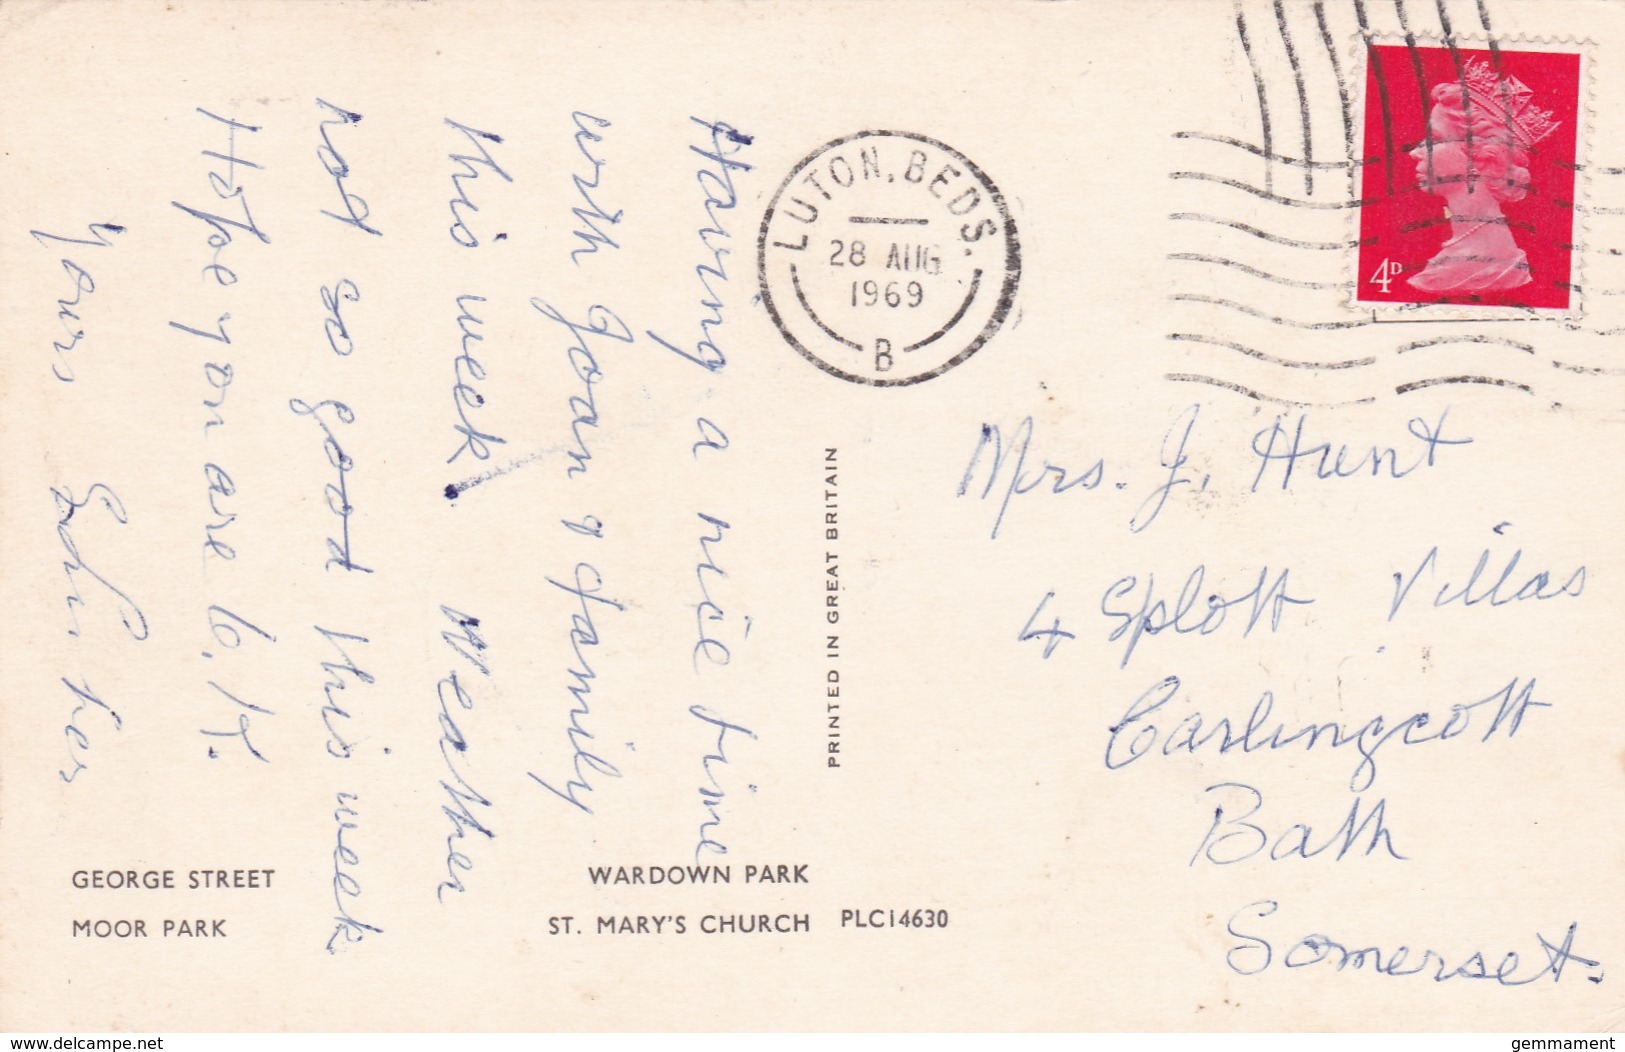 Having a nice time
with Joan & family
this week. Weather
not so good this week
Hope you are O.K.
Yours
LUTON, BEDS.
28 AUG
1969
B
4D
Mrs. J. Hunt
4 Splott Villas
Carlingcott
Bath
Somerset.
PRINTED IN GREAT BRITAIN
GEORGE STREET
MOOR PARK
WARDOWN PARK
ST. MARY'S CHURCH PLC14630
www.delcampe.net
gemmament